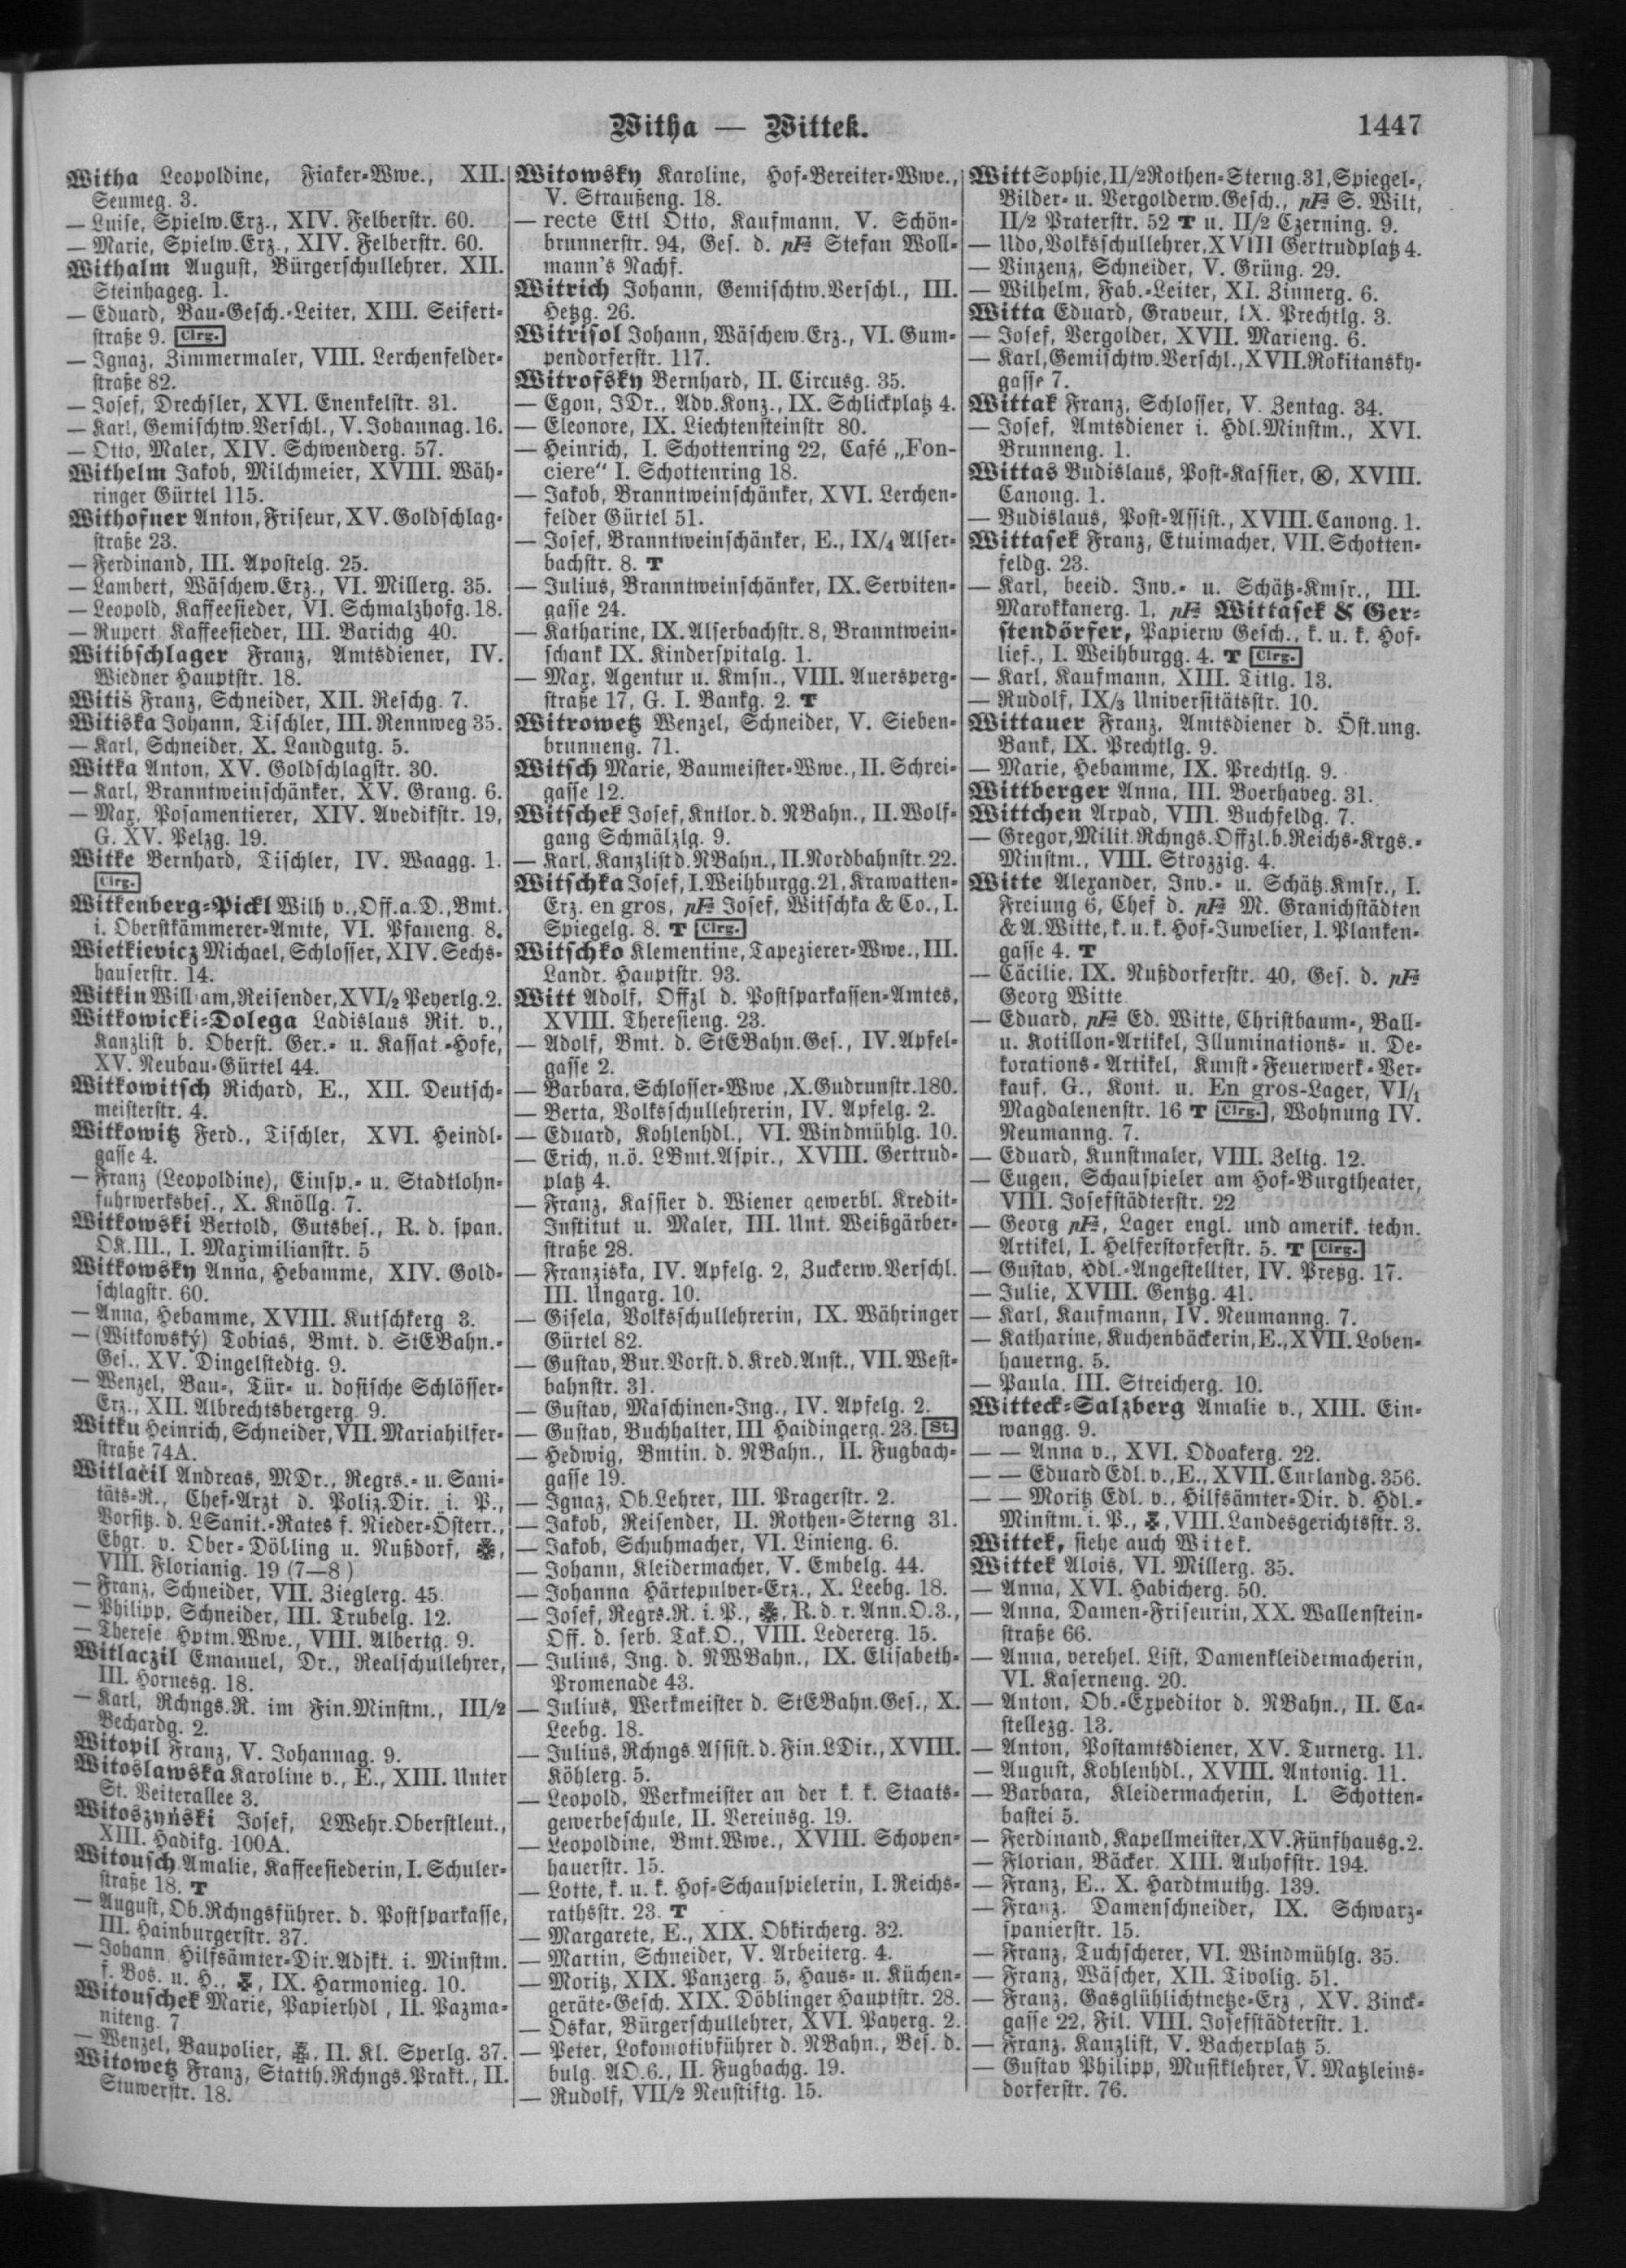 Witha — Wittek.
1447
Witha Leopoldine, Fiaker-Wwe., XII.
Seumeg. 3.
— Luise, Spielw.Erz., XIV. Felberstr. 60.
— Marie, Spielw.Erz., XIV. Felberstr. 60.
Withalm August, Bürgerschullehrer, XII.
Steinhageg. 1.
— Eduard, Bau-Gesch.-Leiter, XIII. Seifert-
straße 9. Clrg.
— Ignaz, Zimmermaler, VIII. Lerchenfelder-
straße 82.
— Josef, Drechsler, XVI. Enenkelstr. 31.
— Karl, Gemischtw.Verschl., V. Johannag. 16.
— Otto, Maler, XIV. Schwenderg. 57.
Withelm Jakob, Milchmeier, XVIII. Wäh-
ringer Gürtel 115.
Withofner Anton, Friseur, XV. Goldschlag-
straße 23.
— Ferdinand, III. Apostelg. 25.
— Lambert, Wäschew.Erz., VI. Millerg. 35.
— Leopold, Kaffeesieder, VI. Schmalzhofg. 18.
— Rupert Kaffeesieder, III. Barichg 40.
Witibschlager Franz, Amtsdiener, IV.
Wiedner Hauptstr. 18.
Witiš Franz, Schneider, XII. Reschg. 7.
Witiska Johann, Tischler, III. Rennweg 35.
— Karl, Schneider, X. Landgutg. 5.
Witka Anton, XV. Goldschlagstr. 30.
— Karl, Branntweinschänker, XV. Grang. 6.
— Max, Posamentierer, XIV. Avedikstr. 19,
G. XV. Pelzg. 19.
Witke Bernhard, Tischler, IV. Waagg. 1.
Clrg.
Witkenberg-Pickl Wilh v., Off.a.D., Bmt.
i. Oberstkämmerer-Amte, VI. Pfaueng. 8.
Wietkievicz Michael, Schlosser, XIV. Sechs-
hauserstr. 14.
Witkin Will am, Reisender, XVI/2 Peyerlg. 2.
Witkowicki-Dolega Ladislaus Rit. v.,
Kanzlist b. Oberst. Ger.- u. Kassat.-Hofe,
XV. Neubau-Gürtel 44.
Witkowitsch Richard, E., XII. Deutsch-
meisterstr. 4.
Witkowitz Ferd., Tischler, XVI. Heindl-
gasse 4.
— Franz (Leopoldine), Einsp.- u. Stadtlohn-
fuhrwerksbes., X. Knöllg. 7.
Witkowski Bertold, Gutsbes., R. d. span.
OK.III., I. Maximilianstr. 5
Witkowsky Anna, Hebamme, XIV. Gold-
schlagstr. 60.
— Anna, Hebamme, XVIII. Kutschkerg 3.
— (Witkowský) Tobias, Bmt. d. StEBahn.-
Ges., XV. Dingelstedtg. 9.
— Wenzel, Bau-, Tür- u. dosische Schlösser-
Erz., XII. Albrechtsbergerg. 9.
Witku Heinrich, Schneider, VII. Mariahilfer-
straße 74A.
Witlačil Andreas, MDr., Regrs.- u. Sani-
täts-R., Chef-Arzt d. Poliz.Dir. i. P.,
Vorsitz. d. LSanit.-Rates f. Nieder-Österr.,
Ebgr. v. Ober-Döbling u. Nußdorf,
VIII. Florianig. 19 (7—8)
— Franz, Schneider, VII. Zieglerg. 45.
— Philipp, Schneider, III. Trubelg. 12.
— Therese Hptm.Wwe., VIII. Albertg. 9.
Witlaczil Emanuel, Dr., Realschullehrer,
III. Hornesg. 18.
— Karl, Rchngs.R. im Fin.Minstm., III/2
Bechardg. 2.
Witopil Franz, V. Johannag. 9.
Witoslawska Karoline v., E., XIII. Unter
St. Veiterallee 3.
Witoszyński Josef, LWehr.Oberstleut.,
XIII. Hadikg. 100A.
Witousch Amalie, Kaffeesiederin, I. Schuler-
straße 18. T
— August, Ob.Rchngsführer. d. Postsparkasse,
III. Hainburgerstr. 37.
— Johann, Hilfsämter-Dir.Adjkt. i. Minstm.
f. Bos. u. H., IX. Harmonieg. 10.
Witouschek Marie, Papierhdl, II. Pazma-
niteng. 7
— Wenzel, Baupolier, II. Kl. Sperlg. 37.
Witowetz Franz, Statth.Rchngs.Prakt., II.
Stuwerstr. 18.
Witowsky Karoline, Hof-Bereiter-Wwe.,
V. Straußeng. 18.
— recte Ettl Otto, Kaufmann, V. Schön-
brunnerstr. 94, Ges. d. pF Stefan Woll-
mann's Nachf.
Witrich Johann, Gemischtw.Verschl., III.
Hetzg. 26.
Witrisol Johann, Wäschew.Erz., VI. Gum-
pendorferstr. 117.
Witrofsky Bernhard, II. Circusg. 35.
— Egon, JDr., Adv.Konz., IX. Schlickplatz 4.
— Eleonore, IX. Liechtensteinstr 80.
— Heinrich, I. Schottenring 22, Café „Fon-
ciere“ I. Schottenring 18.
— Jakob, Branntweinschänker, XVI. Lerchen-
felder Gürtel 51.
— Josef, Branntweinschänker, E., IX/4 Alser-
bachstr. 8. T
— Julius, Branntweinschänker, IX. Serviten-
gasse 24.
— Katharine, IX. Alserbachstr. 8, Branntwein-
schank IX. Kinderspitalg. 1.
— Max, Agentur u. Kmsn., VIII. Auersperg-
straße 17, G. I. Bankg. 2. T
Witrowetz Wenzel, Schneider, V. Sieben-
brunneng. 71.
Witsch Marie, Baumeister-Wwe., II. Schrei-
gasse 12.
Witschek Josef, Kntlor. d. NBahn., II. Wolf-
gang Schmälzlg. 9.
— Karl, Kanzlist d. NBahn., II. Nordbahnstr. 22.
Witschka Josef, I. Weihburgg. 21, Krawatten-
Erz. en gros, pF Josef, Witschka & Co., I.
Spiegelg. 8. T Clrg.
Witschko Klementine, Tapezierer-Wwe., III.
Landr. Hauptstr. 93.
Witt Adolf, Offzl d. Postsparkassen-Amtes,
XVIII. Theresieng. 23.
— Adolf, Bmt. d. StEBahn.Ges., IV. Apfel-
gasse 2.
— Barbara, Schlosser-Wwe, X. Gudrunstr. 180.
— Berta, Volksschullehrerin, IV. Apfelg. 2.
— Eduard, Kohlenhdl., VI. Windmühlg. 10.
— Erich, n.ö. LBmt.Aspir., XVIII. Gertrud-
platz 4.
— Franz, Kassier d. Wiener gewerbl. Kredit-
Institut u. Maler, III. Unt. Weißgärber-
straße 28.
— Franziska, IV. Apfelg. 2, Zuckerw.Verschl.
III. Ungarg. 10.
— Gisela, Volksschullehrerin, IX. Währinger
Gürtel 82.
— Gustav, Bur.Vorst. d. Kred.Anst., VII. West-
bahnstr. 31.
— Gustav, Maschinen-Ing., IV. Apfelg. 2.
— Gustav, Buchhalter, III Haidingerg. 23. St.
— Hedwig, Bmtin. d. NBahn., II. Fugbach-
gasse 19.
— Ignaz, Ob.Lehrer, III. Pragerstr. 2.
— Jakob, Reisender, II. Rothen-Sterng 31.
— Jakob, Schuhmacher, VI. Linieng. 6.
— Johann, Kleidermacher, V. Embelg. 44.
— Johanna Härtepulver-Erz., X. Leebg. 18.
— Josef, Regrs.R. i. P., R. d. r. Ann.O.3.,
Off. d. serb. Tak.O., VIII. Ledererg. 15.
— Julius, Ing. d. NWBahn., IX. Elisabeth-
Promenade 43.
— Julius, Werkmeister d. StEBahn.Ges., X.
Leebg. 18.
— Julius, Rchngs Assist. d. Fin.LDir., XVIII.
Köhlerg. 5.
— Leopold, Werkmeister an der k. k. Staats-
gewerbeschule, II. Vereinsg. 19.
— Leopoldine, Bmt.Wwe., XVIII. Schopen-
hauerstr. 15.
— Lotte, k. u. k. Hof-Schauspielerin, I. Reichs-
rathsstr. 23. T
— Margarete, E., XIX. Obkircherg. 32.
— Martin, Schneider, V. Arbeiterg. 4.
— Moritz, XIX. Panzerg. 5, Haus- u. Küchen-
geräte-Gesch. XIX. Döblinger Hauptstr. 28.
— Oskar, Bürgerschullehrer, XVI. Payerg. 2.
— Peter, Lokomotivführer d. NBahn., Bes. d.
bulg. AO.6., II. Fugbachg. 19.
— Rudolf, VII/2 Neustiftg. 15.
Witt Sophie, II/2 Rothen-Sterng. 31, Spiegel-,
Bilder- u. Vergolderw.Gesch., pF S. Wilt,
II/2 Praterstr. 52 T u. II/2 Czerning. 9.
— Udo, Volksschullehrer, XVIII Gertrudplatz 4.
— Vinzenz, Schneider, V. Grüng. 29.
— Wilhelm, Fab.-Leiter, XI. Zinnerg. 6.
Witta Eduard, Graveur, IX. Prechtlg. 3.
— Josef, Vergolder, XVII. Marieng. 6.
— Karl, Gemischtw.Verschl., XVII. Rokitansky-
gasse 7.
Wittak Franz, Schlosser, V. Zentag. 34.
— Josef, Amtsdiener i. Hdl.Minstm., XVI.
Brunneng. 1.
Wittas Budislaus, Post-Kassier, Ⓚ, XVIII.
Canong. 1.
— Budislaus, Post-Assist., XVIII. Canong. 1.
Wittasek Franz, Etuimacher, VII. Schotten-
feldg. 23.
— Karl, beeid. Inv.- u. Schätz-Kmsr., III.
Marokkanerg. 1, pF Wittasek & Ger-
stendörfer, Papierw Gesch., k. u. k. Hof-
lief., I. Weihburgg. 4. T Clrg.
— Karl, Kaufmann, XIII. Titlg. 13.
— Rudolf, IX/3 Universitätsstr. 10.
Wittauer Franz, Amtsdiener d. Öst.ung.
Bank, IX. Prechtlg. 9.
— Marie, Hebamme, IX. Prechtlg. 9.
Wittberger Anna, III. Boerhaveg. 31.
Wittchen Arpad, VIII. Buchfeldg. 7.
— Gregor, Milit.Rchngs.Offzl.b.Reichs-Krgs.-
Minstm., VIII. Strozzig. 4.
Witte Alexander, Inv.- u. Schätz.Kmsr., I.
Freiung 6, Chef d. pF M. Granichstädten
& A. Witte, k. u. k. Hof-Juwelier, I. Planken-
gasse 4. T
— Cäcilie, IX. Nußdorferstr. 40, Ges. d. pF
Georg Witte
— Eduard, pF Ed. Witte, Christbaum-, Ball-
u. Kotillon-Artikel, Illuminations- u. De-
korations-Artikel, Kunst-Feuerwerk-Ver-
kauf, G., Kont. u. En gros-Lager, VI/1
Magdalenenstr. 16 T Clrg., Wohnung IV.
Neumanng. 7.
— Eduard, Kunstmaler, VIII. Zeltg. 12.
— Eugen, Schauspieler am Hof-Burgtheater,
VIII. Josefstädterstr. 22
— Georg pF, Lager engl. und amerik. techn.
Artikel, I. Helferstorferstr. 5. T Clrg.
— Gustav, Hdl.-Angestellter, IV. Preßg. 17.
— Julie, XVIII. Gentzg. 41.
— Karl, Kaufmann, IV. Neumanng. 7.
— Katharine, Kuchenbäckerin, E., XVII. Loben-
hauerng. 5.
— Paula, III. Streicherg. 10.
Witteck-Salzberg Amalie v., XIII. Ein-
wangg. 9.
— — Anna v., XVI. Odoakerg. 22.
— — Eduard Edl. v., E., XVII. Curlandg. 356.
— — Moritz Edl. v., Hilfsämter-Dir. d. Hdl.-
Minstm. i. P., VIII. Landesgerichtsstr. 3.
Wittek, siehe auch Witek.
Wittek Alois, VI. Millerg. 35.
— Anna, XVI. Habicherg. 50.
— Anna, Damen-Friseurin, XX. Wallenstein-
straße 66.
— Anna, verehel. List, Damenkleidermacherin,
VI. Kaserneng. 20.
— Anton, Ob.-Expeditor d. NBahn., II. Ca-
stellezg. 13.
— Anton, Postamtsdiener, XV. Turnerg. 11.
— August, Kohlenhdl., XVIII. Antonig. 11.
— Barbara, Kleidermacherin, I. Schotten-
bastei 5.
— Ferdinand, Kapellmeister, XV. Fünfhausg. 2.
— Florian, Bäcker, XIII. Auhofstr. 194.
— Franz, E., X. Hardtmuthg. 139.
— Franz, Damenschneider, IX. Schwarz-
spanierstr. 15.
— Franz, Tuchscherer, VI. Windmühlg. 35.
— Franz, Wäscher, XII. Tivolig. 51.
— Franz, Gasglühlichtnetze-Erz, XV. Zinck-
gasse 22, Fil. VIII. Josefstädterstr. 1.
— Franz, Kanzlist, V. Bacherplatz 5.
— Gustav Philipp, Musiklehrer, V. Matzleins-
dorferstr. 76.